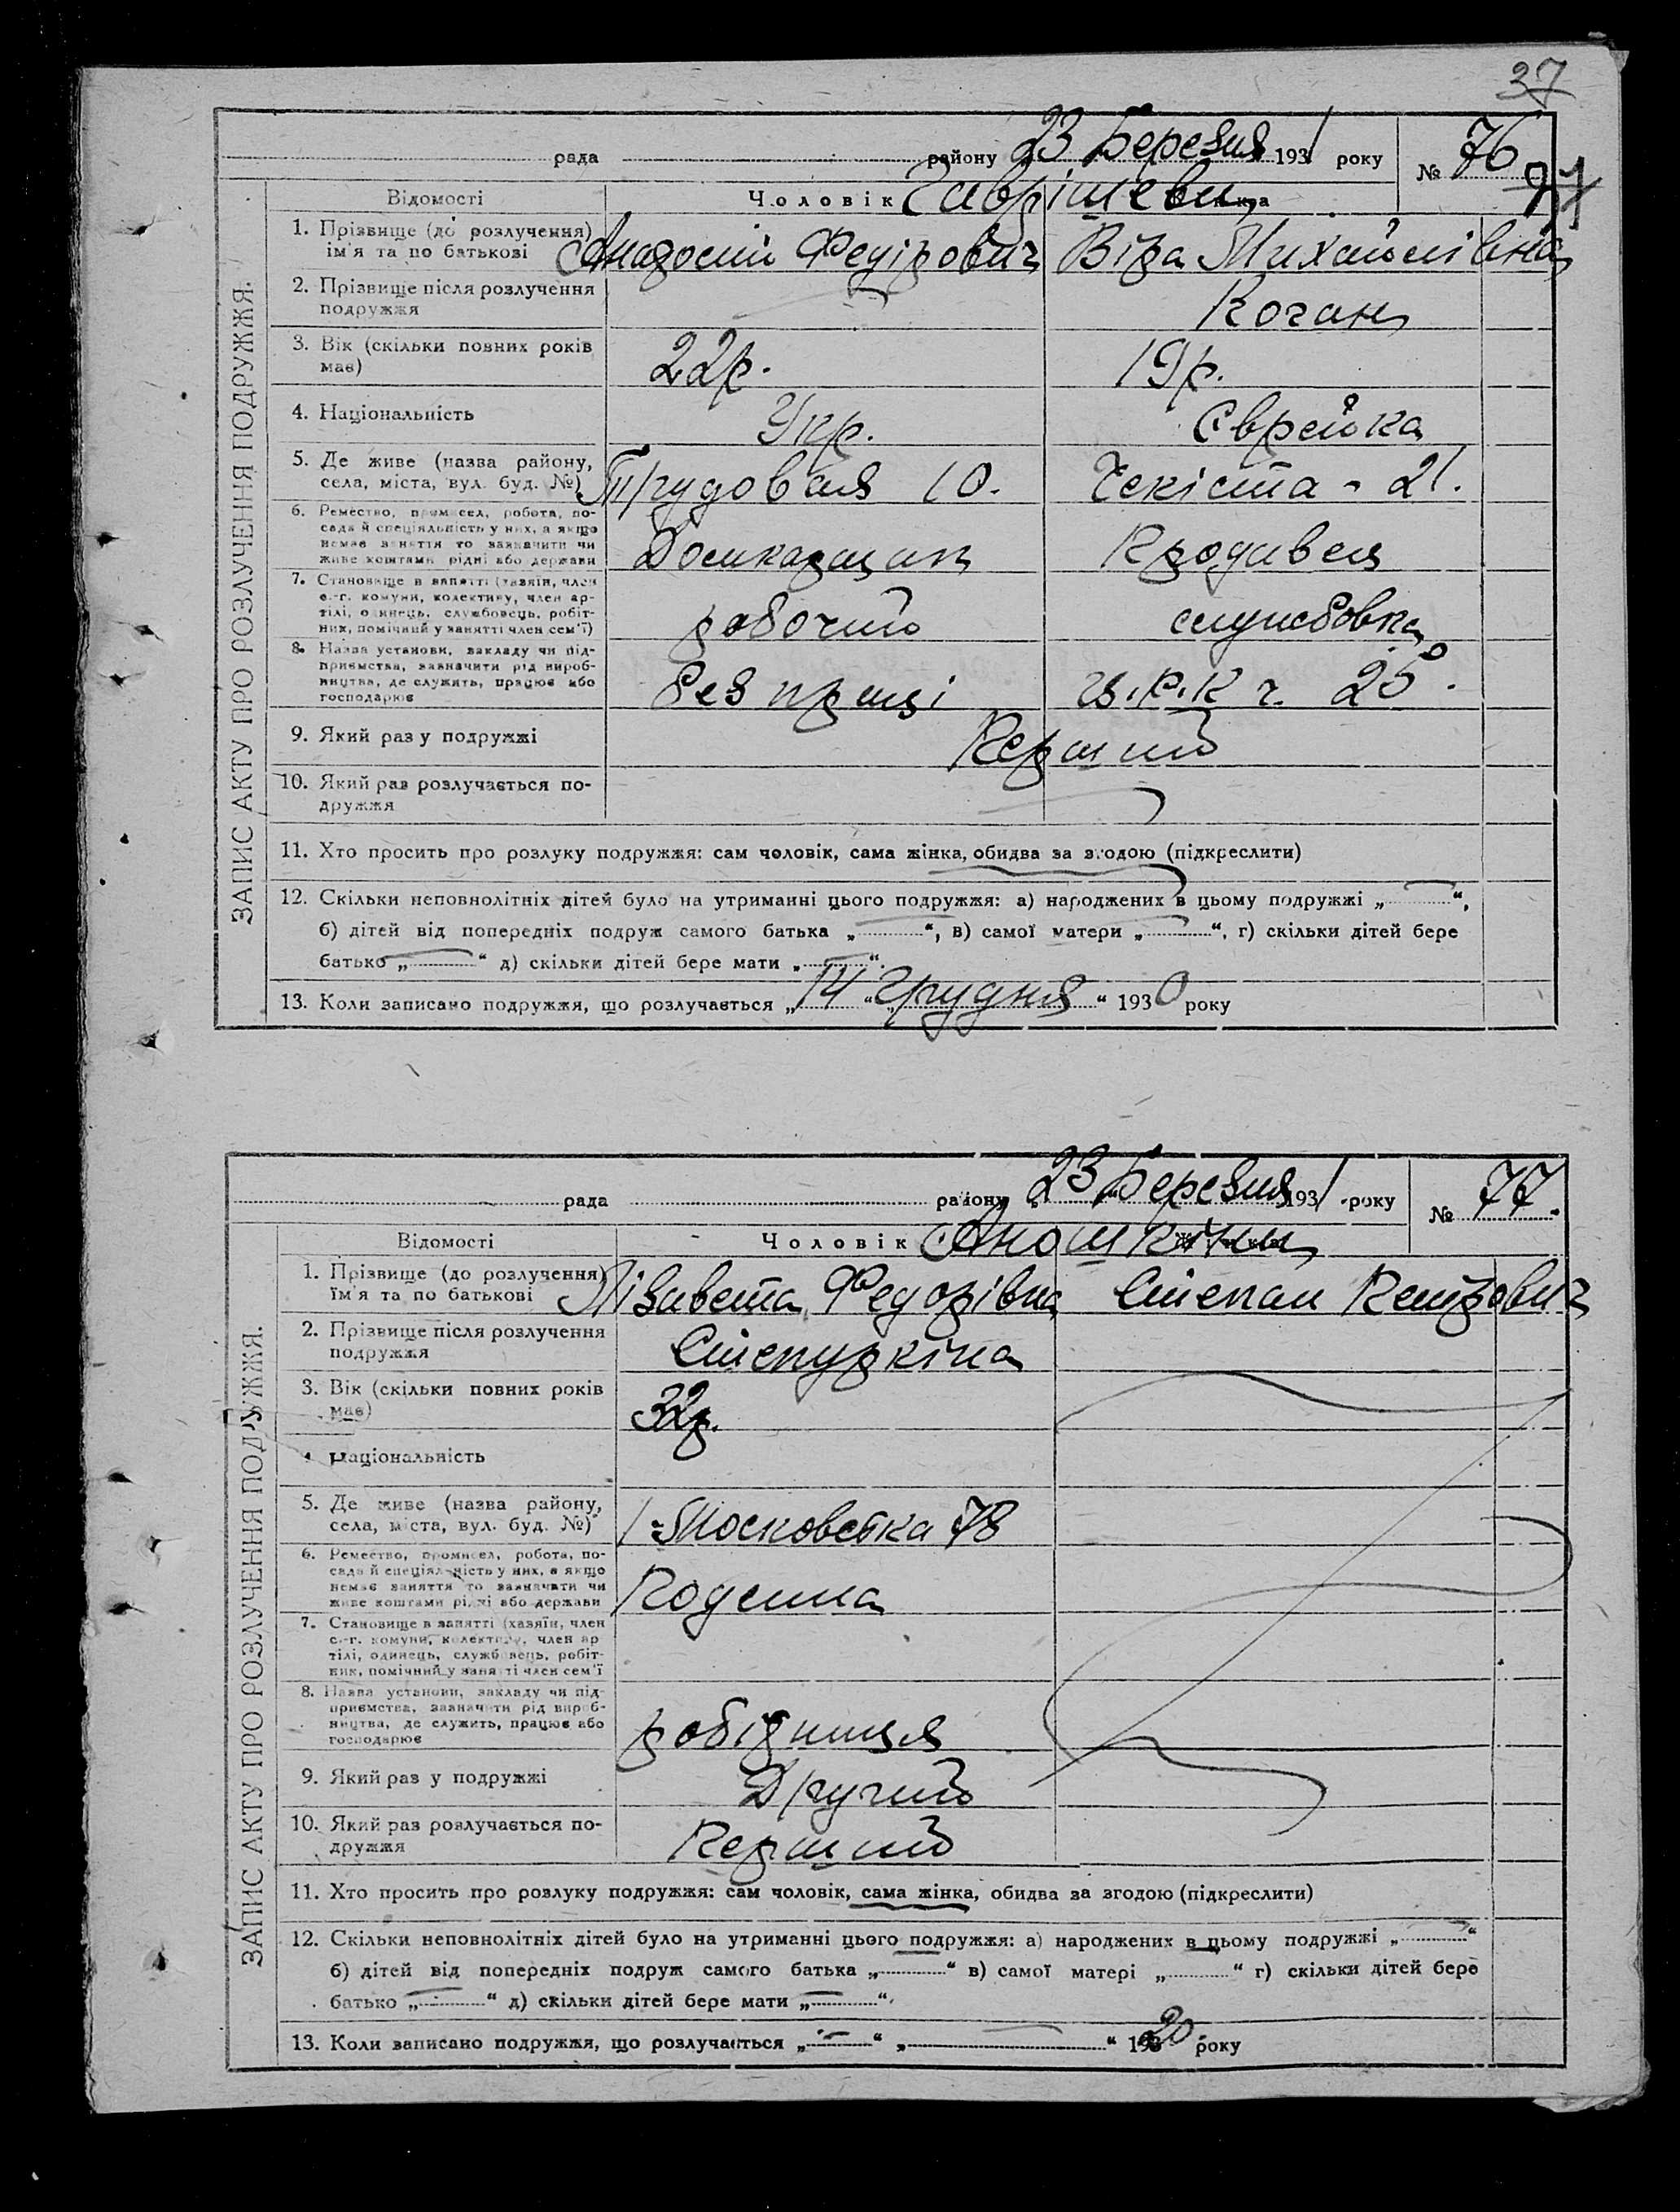 37
рада району 23 Березня 1931 року № 76
97
Відомості Чоловік Гаврішеви
1. Прізвище (до розлучення) ім'я та по батькові Анатолій Федірович Віра Михайлівна
2. Прізвище після розлучення подружжя Коган
3. Вік (скільки повних років має) 22р. 19р.
4. Національність Укр. Єврейка
5. Де живе (назва району, села, міста, вул. буд. №) Трудовая 10. Чекіста - 21.
6. Ремество, промисел, робота, посада й спеціяльність у них, а якщо немає заняття то зазначити чи живе коштами рідні або держави Продавец
7. Становище в занятті (хазяїн, член с.-г. комуни, колективу, член артілі, одинець, службовець, робітник, помічний у занятті член сем'ї) робочий службовка
8. Назва установи, закладу чи підприємства, зазначити рід виробництва, де служить, працює або господарює без праці Ц.Р.К ч. 25.
9. Який раз у подружжі Перший
10. Який раз розлучається подружжя
11. Хто просить про розлуку подружжя: сам чоловік, сама жінка, обидва за згодою (підкреслити)
12. Скільки неповнолітніх дітей було на утриманні цього подружжя: а) народжених в цьому подружжі „ “,
б) дітей від попередніх подруж самого батька „ “, в) самої матери „ “, г) скільки дітей бере
батько „ “ д) скільки дітей бере мати „ “.
13. Коли записано подружжя, що розлучається „14“ „Грудня“ 1930 року
ЗАПИС АКТУ ПРО РОЗЛУЧЕННЯ ПОДРУЖЖЯ.
рада району 23 Березня 1931 року № 77.
Відомості Чоловік Аношкіни
1. Прізвище (до розлучення) їм'я та по батькові Лізавета Федорівна Степан Петрович
2. Прізвище після розлучення подружжя Степуркіна
3. Вік (скільки повних років має) 32р.
Національність
5. Де живе (назва району, села, міста, вул. буд. №) 1-Московська 78
6. Ремество, промисел, робота, посада й спеціяльність у них, а якщо немає заняття то зазначити чи живе коштами рідні або держави Поденна
7. Становище в занятті (хазяїн, член с.-г. комуни, колективу, член артілі, одинець, службовець, робітник, помічний у занятті член сем'ї
8. Назва установи, закладу чи підприємства, зазначити рід виробництва, де служить, працює або господарює робітниця
9. Який раз у подружжі Другий
10. Який раз розлучається подружжя Перший
11. Хто просить про розлуку подружжя: сам чоловік, сама жінка, обидва за згодою (підкреслити)
12. Скільки неповнолітніх дітей було на утриманні цього подружжя: а) народжених в цьому подружжі „ “
б) дітей від попередніх подруж самого батька „ “ в) самої матері „ “ г) скільки дітей бере
батько „ “ д) скільки дітей бере мати „ “.
13. Коли записано подружжя, що розлучається „ “ „ “ 1920 року
ЗАПИС АКТУ ПРО РОЗЛУЧЕННЯ ПОДРУЖЖЯ.